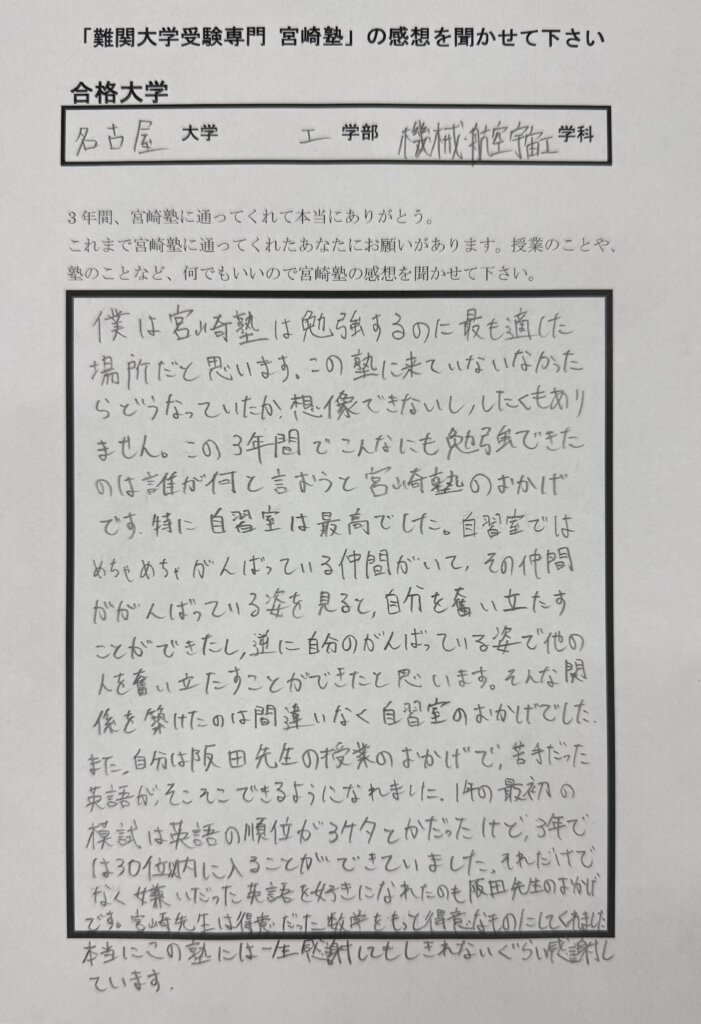 「難関大学受験専門 宮崎塾」の感想を聞かせて下さい
合格大学
名古屋 大学 工 学部 機械・航空宇宙工 学科
3年間、宮崎塾に通ってくれて本当にありがとう。
これまで宮崎塾に通ってくれたあなたにお願いがあります。授業のことや、
塾のことなど、何でもいいので宮崎塾の感想を聞かせて下さい。
僕は宮崎塾は勉強するのに最も適した
場所だと思います。この塾に来ていないなかった
らどうなっていたか想像できないし,したくもあり
ません。この3年間でこんなにも勉強できた
のは誰が何と言おうと宮崎塾のおかげ
です.特に自習室は最高でした。自習室では
めちゃめちゃがんばっている仲間がいて,その仲間
ががんばっている姿を見ると,自分を奮い立たす
ことができたし,逆に自分のがんばっている姿で他の
人を奮い立たすことができたと思います。そんな関
係を築けたのは間違いなく自習室のおかげでした.
また,自分は阪田先生の授業のおかげで,苦手だった
英語が,そこそこできるようになれました.1年の最初の
模試は英語の順位が3ケタとかだったけど,3年で
は30位以内に入ることができていました。それだけで
なく嫌いだった英語を好きになれたのも阪田先生のおかげ
です。宮崎先生は得意だった数学をもっと得意なものにしてくれました
本当にこの塾には一生感謝してもしきれないぐらい感謝し
ています.